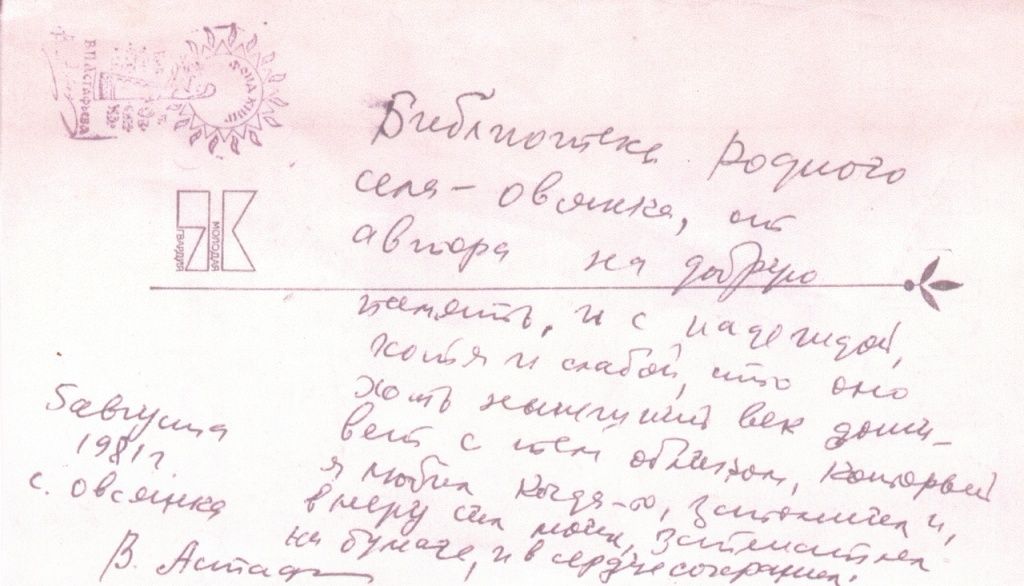 Библиотеке родного
села – овсянка, от
автора на добрую
память, и с надеждой,
хотя и слабой, что оно
хоть нынешний век дожи-
вет с тем обликом, который
я любил когда-то, запомнил и,
в меру сил моих, запечатлел
на бумаге, и в сердце сохранил.
5 августа
1981 г.
с. Овсянка
В. Астаф
МОЛОДАЯ
ГВАРДИЯ
В.П. АСТАФЬЕВА